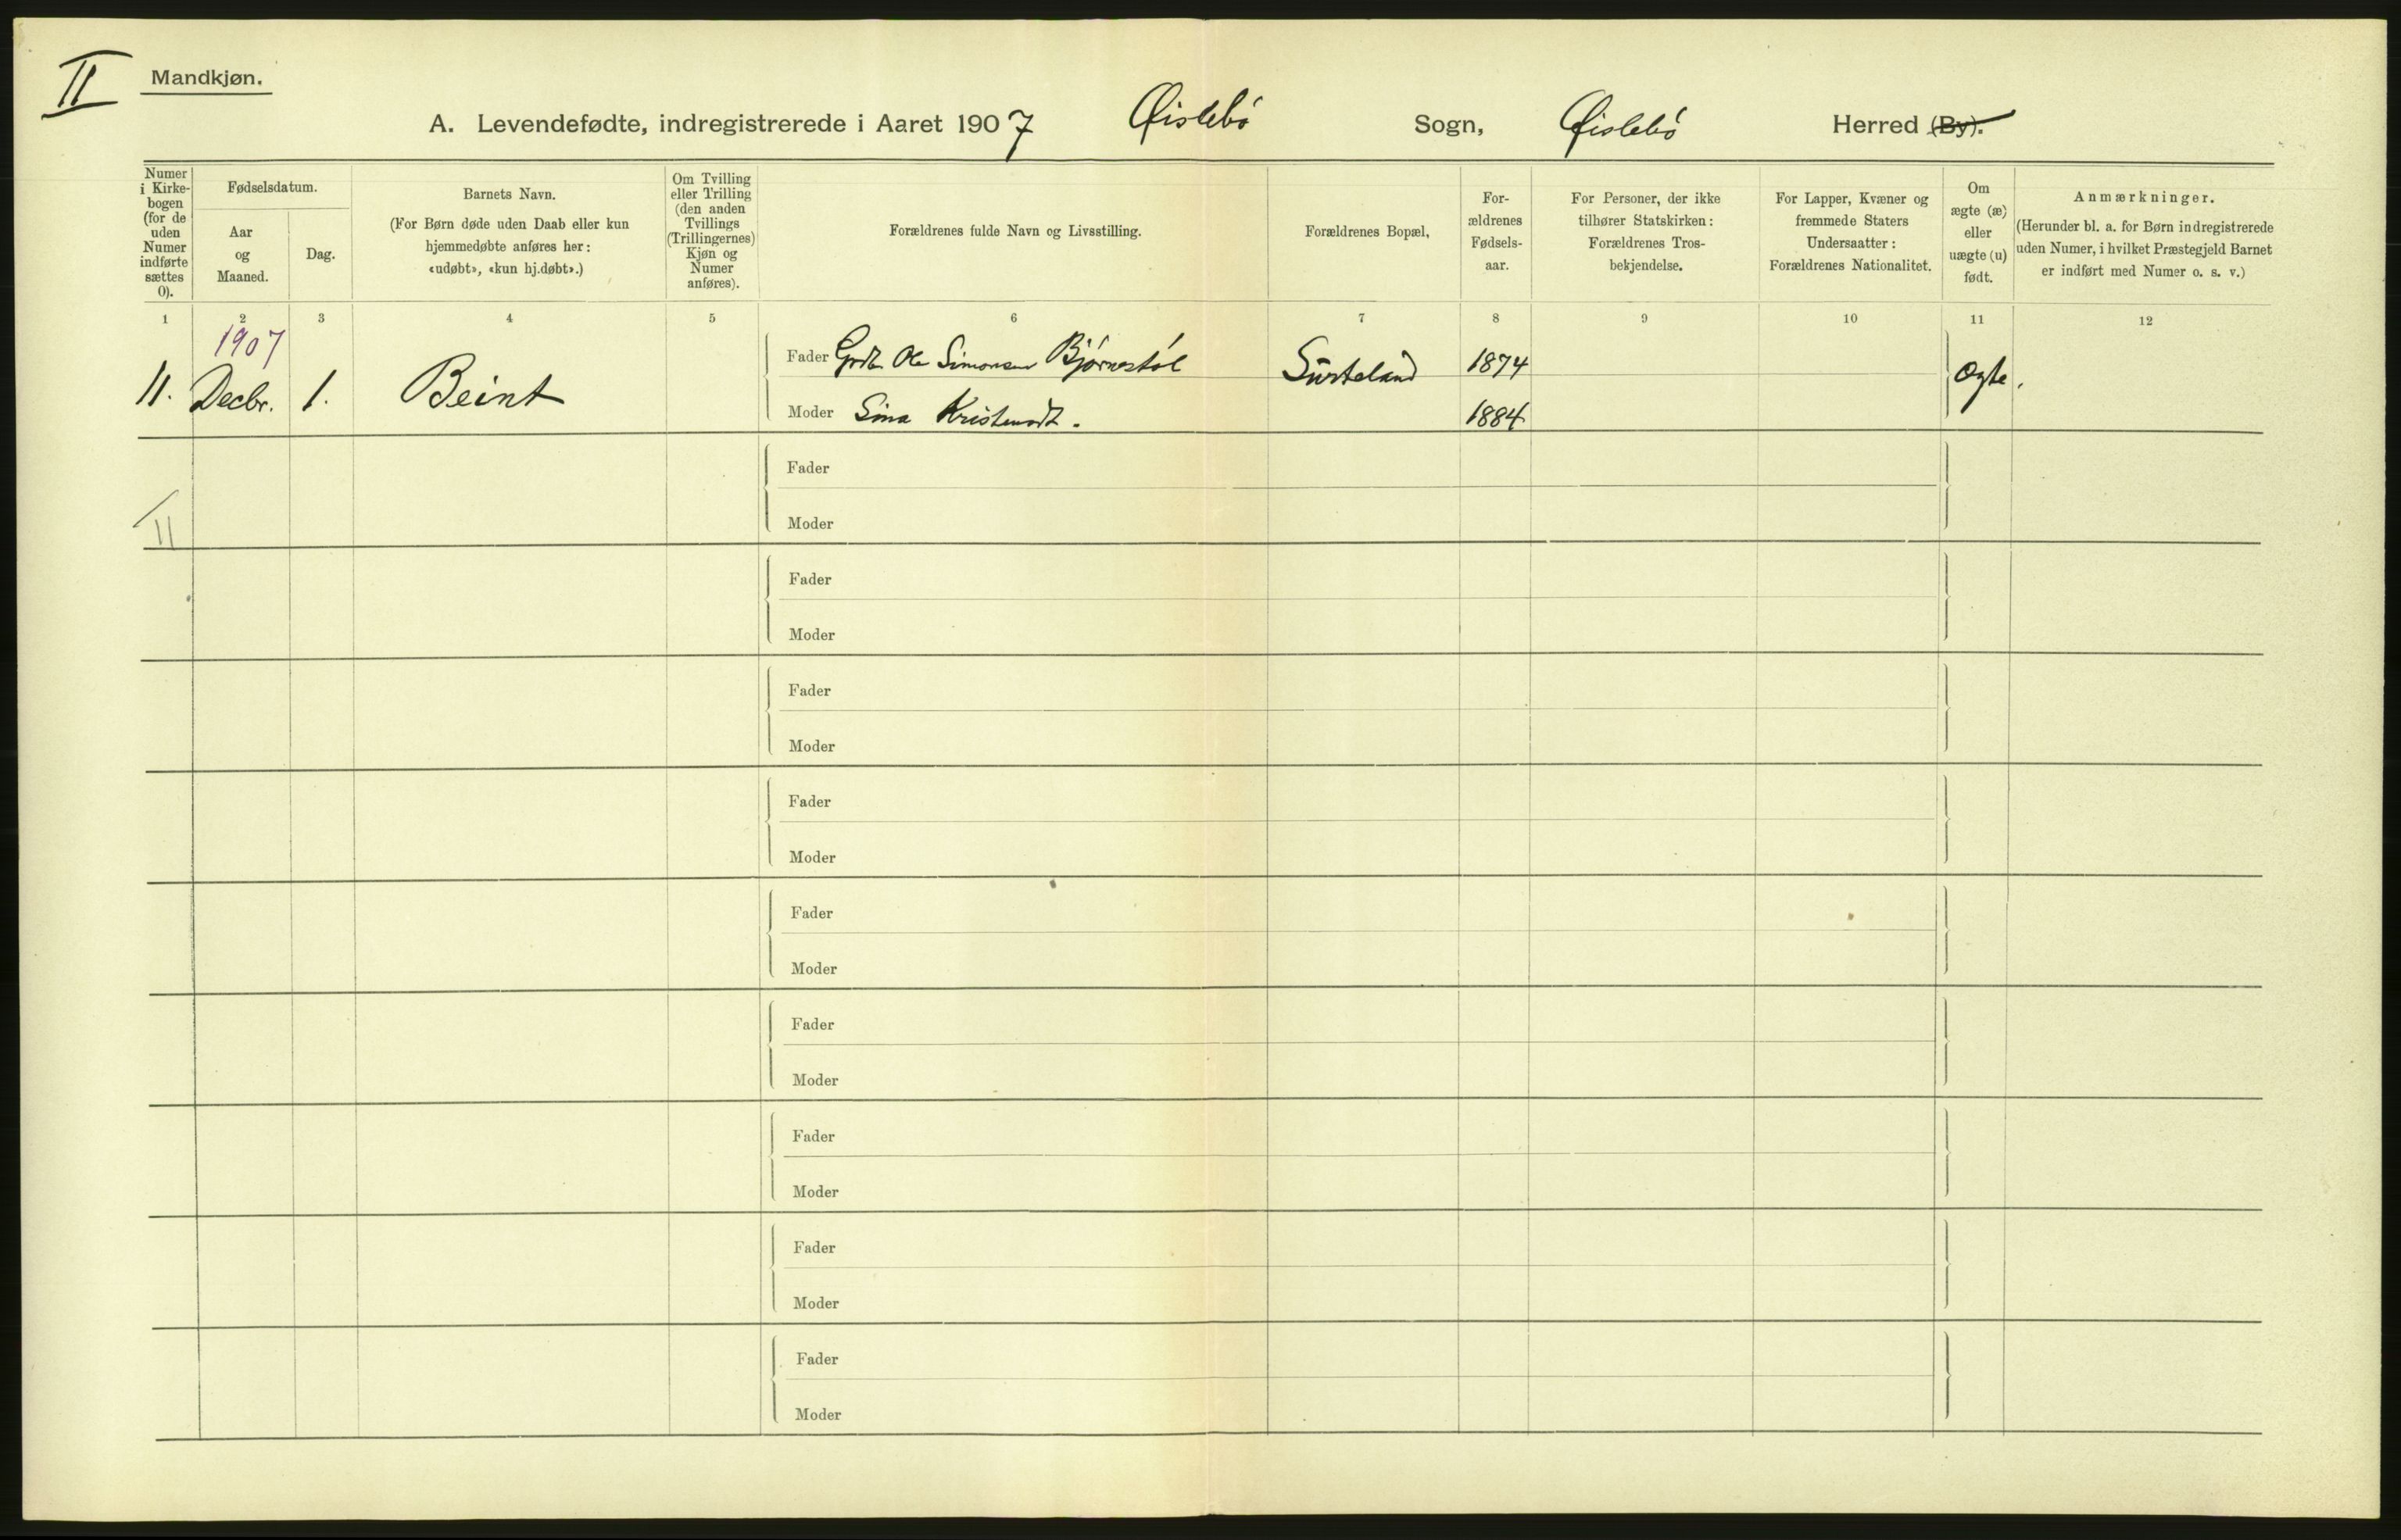 II
Mandkjøn.
A. Levendefødte, indregistrerede i Aaret 1907 Øislebø Sogn, Øislebø Herred (By).
Numer i Kirkebogen (for de uden Numer indførte sættes 0).
Fødselsdatum.
Aar og Maaned.
Dag.
Barnets Navn.
(For Børn døde uden Daab eller kun hjemmedøbte anføres her: «udøbt», «kun hj.døbt».)
Om Tvilling eller Trilling (den anden Tvillings (Trillingernes) Kjøn og Numer anføres).
Forældrenes fulde Navn og Livsstilling.
Forældrenes Bopæl,
For-ældrenes Fødsels-aar.
For Personer, der ikke tilhører Statskirken: Forældrenes Tros-bekjendelse.
For Lapper, Kvæner og fremmede Staters Undersaatter: Forældrenes Nationalitet.
Om ægte (æ) eller uægte (u) født.
Anmærkninger.
(Herunder bl. a. for Børn indregistrerede uden Numer, i hvilket Præstegjeld Barnet er indført med Numer o. s. v.)
1 2 3 4 5 6 7 8 9 10 11 12
1907
11. Decbr. 1. Beint
Fader Ole Simonsen Bjørnestøl
Moder Sina
1874
1884
Ægte.
Fader
Moder
11
Fader
Moder
Fader
Moder
Fader
Moder
Fader
Moder
Fader
Moder
Fader
Moder
Fader
Moder
Fader
Moder